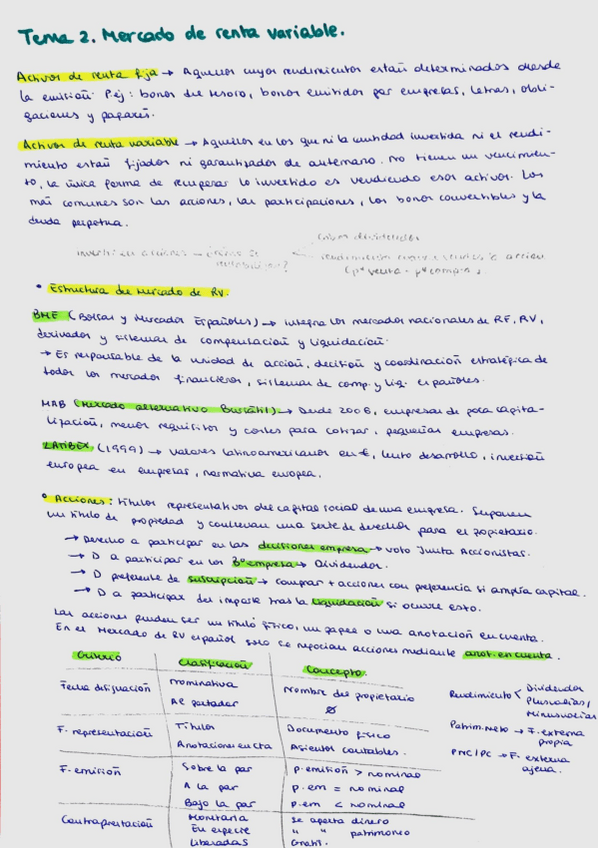 Tema 2. Mercado de renta variable.
Activos de renta fija → Aquellos cuyos rendimientos están determinados desde
la emisión. Pej: bonos del tesoro, bonos emitidos por empresas, letras, obli-
gaciones y pagarés.
Activos de renta variable → Aquellos en los que ni la cantidad invertida ni el rendi-
miento están fijados ni garantizados de antemano. No tienen un vencimien-
to, la única forma de recuperar lo invertido es vendiendo esos activos. Los
más comunes son las acciones, las participaciones, los bonos convertibles y la
deuda perpetua.
Cobro dividendos
invertir en acciones → ¿cómo se
rentabiliza?
rendimiento acción
(pº venta - pº compra).
• Estructura del Mercado de RV.
BME (Bolsas y Mercados Españoles) → integra los mercados nacionales de RF, RV,
derivados y sistemas de compensación y liquidación.
→ Es responsable de la unidad de acción, decisión y coordinación estratégica de
todos los mercados financieros, sistemas de comp. y liq. españoles.
MAB (Mercado alternativo Bursátil) → Desde 2006, empresas de poca capita-
lización, menor requisitos y costes para cotizar, pequeñas empresas.
LATIBEX (1999) → Valores latinoamericanos en €, lento desarrollo, inversión
europea en empresas, normativa europea.
• Acciones: títulos representativos del capital social de una empresa. Suponen
un título de propiedad y conllevan una serie de derechos para el propietario.
→ Derecho a participar en las decisiones empresa → voto Junta Accionistas.
→ D a participar en los Bº empresa → Dividendos.
→ D preferente de suscripción → comprar + acciones con preferencia si amplía capital.
→ D a participar del importe tras la liquidación si ocurre esto.
Las acciones pueden ser un título físico, un papel o una anotación en cuenta.
En el Mercado de RV español solo se negocian acciones mediante anot. en cuenta.
Criterio Clasificación Concepto
Fecha designación Nominativa Nombre del propietario
Al portador Ø
F. representación Títulos Documento físico
Anotaciones en cta Asientos contables.
F. emisión Sobre la par p. emisión > nominal
A la par p. em = nominal
Bajo la par p. em < nominal
Contraprestación Monetaria se aporta dinero
En especie " " patrimonio
Liberadas Gratis.
Rendimiento < Dividendos
Plusvalías/
Minusvalías
Patrim. neto → F. externa
propia
PNC/PC → F. externa
ajena.